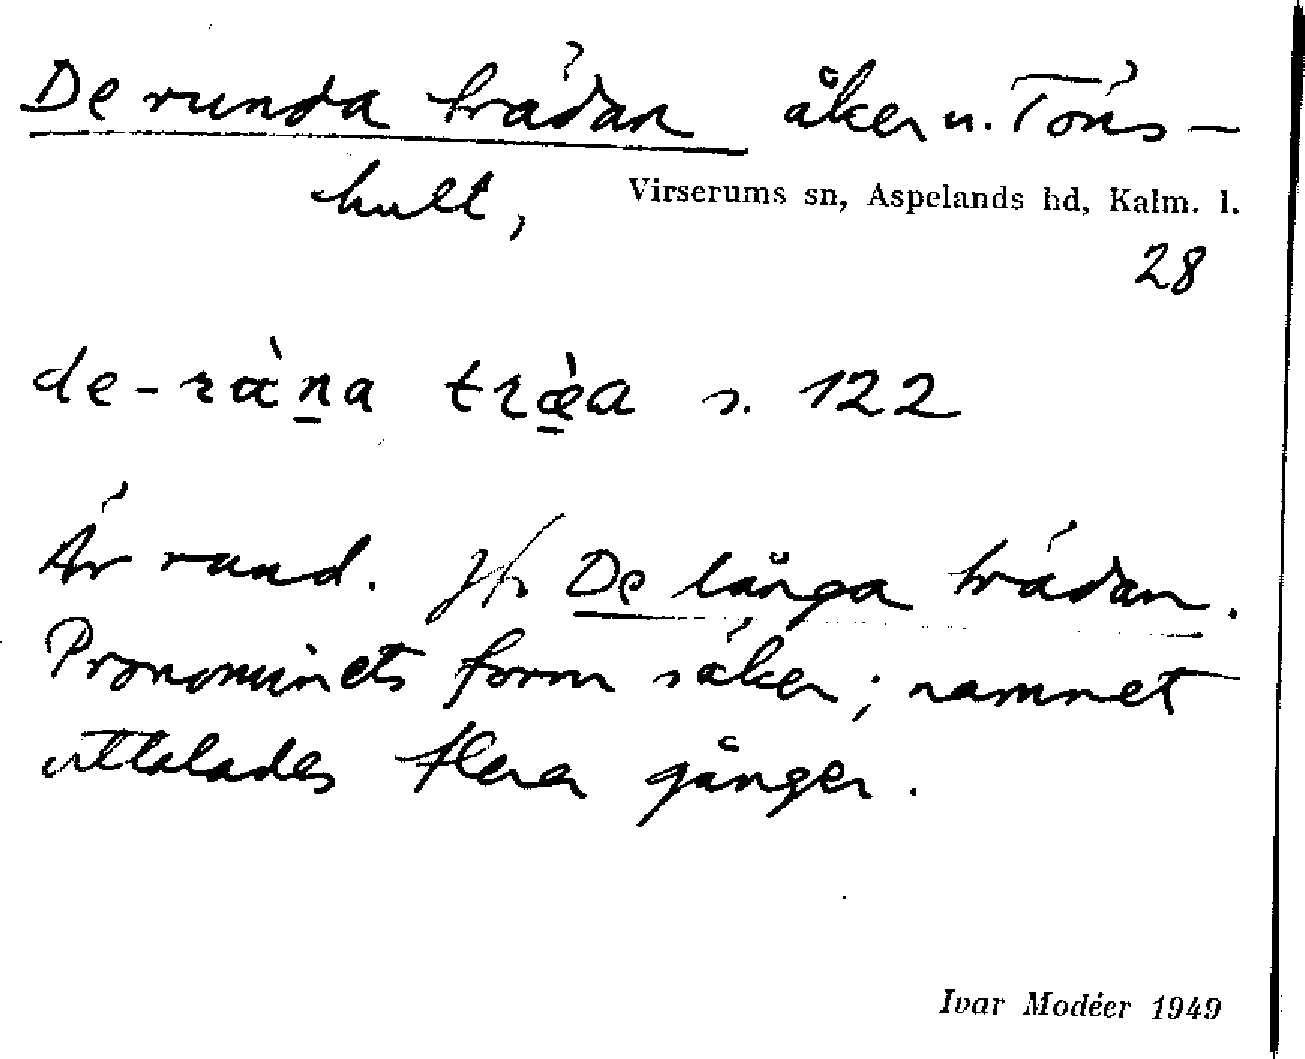 De runda trädan åker u. Töns-
hult, Virserums sn, Aspelands hd, Kalm. l.
28
de-ràn̲a træ̲̀a s. 122
Är rund. Jfr De långa trädan.
Pronominets form säker; namnet
uttalades flera gånger.
Ivar Modéer 1949